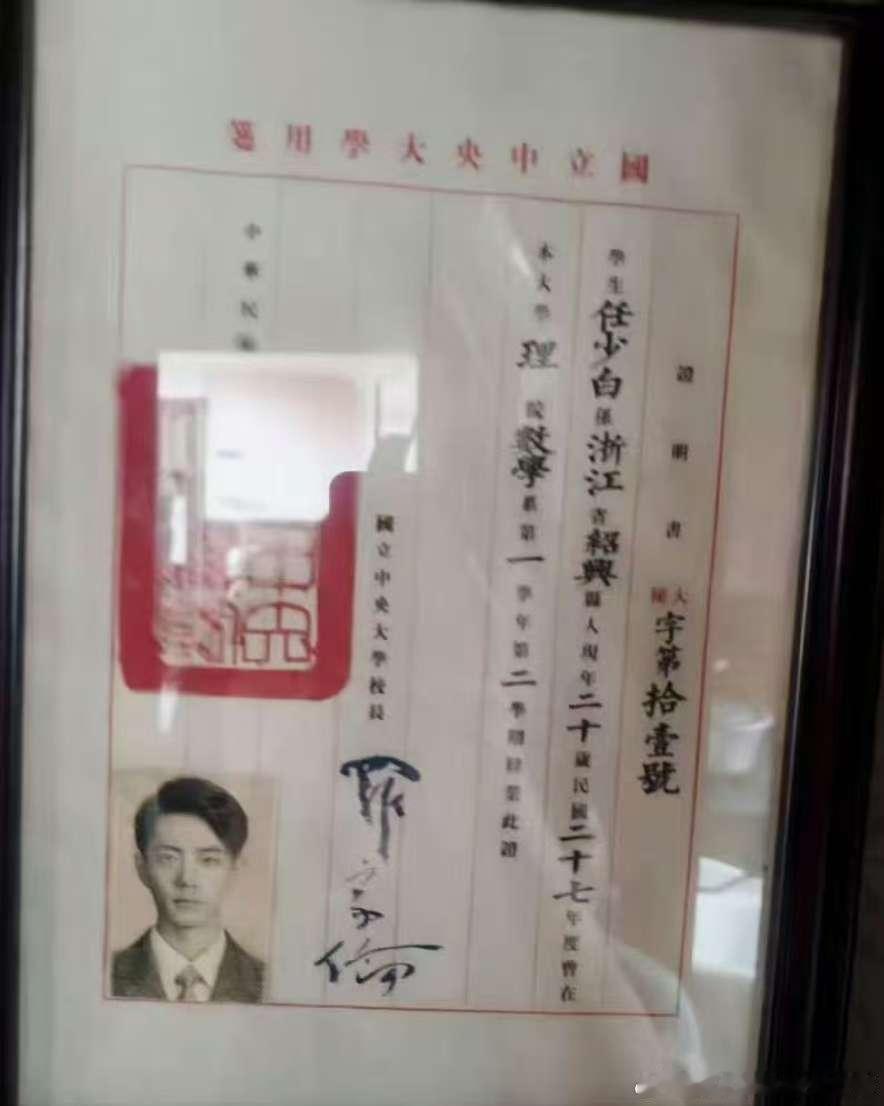 國立中央大學用箋
證明書 大陳字第拾壹號
學生任少白係浙江省紹興縣人現年二十歲民國二十七年度曾在
本大學理院數學系第一學年第二學期肄業此證
國立中央大學校長
羅家倫
中華民